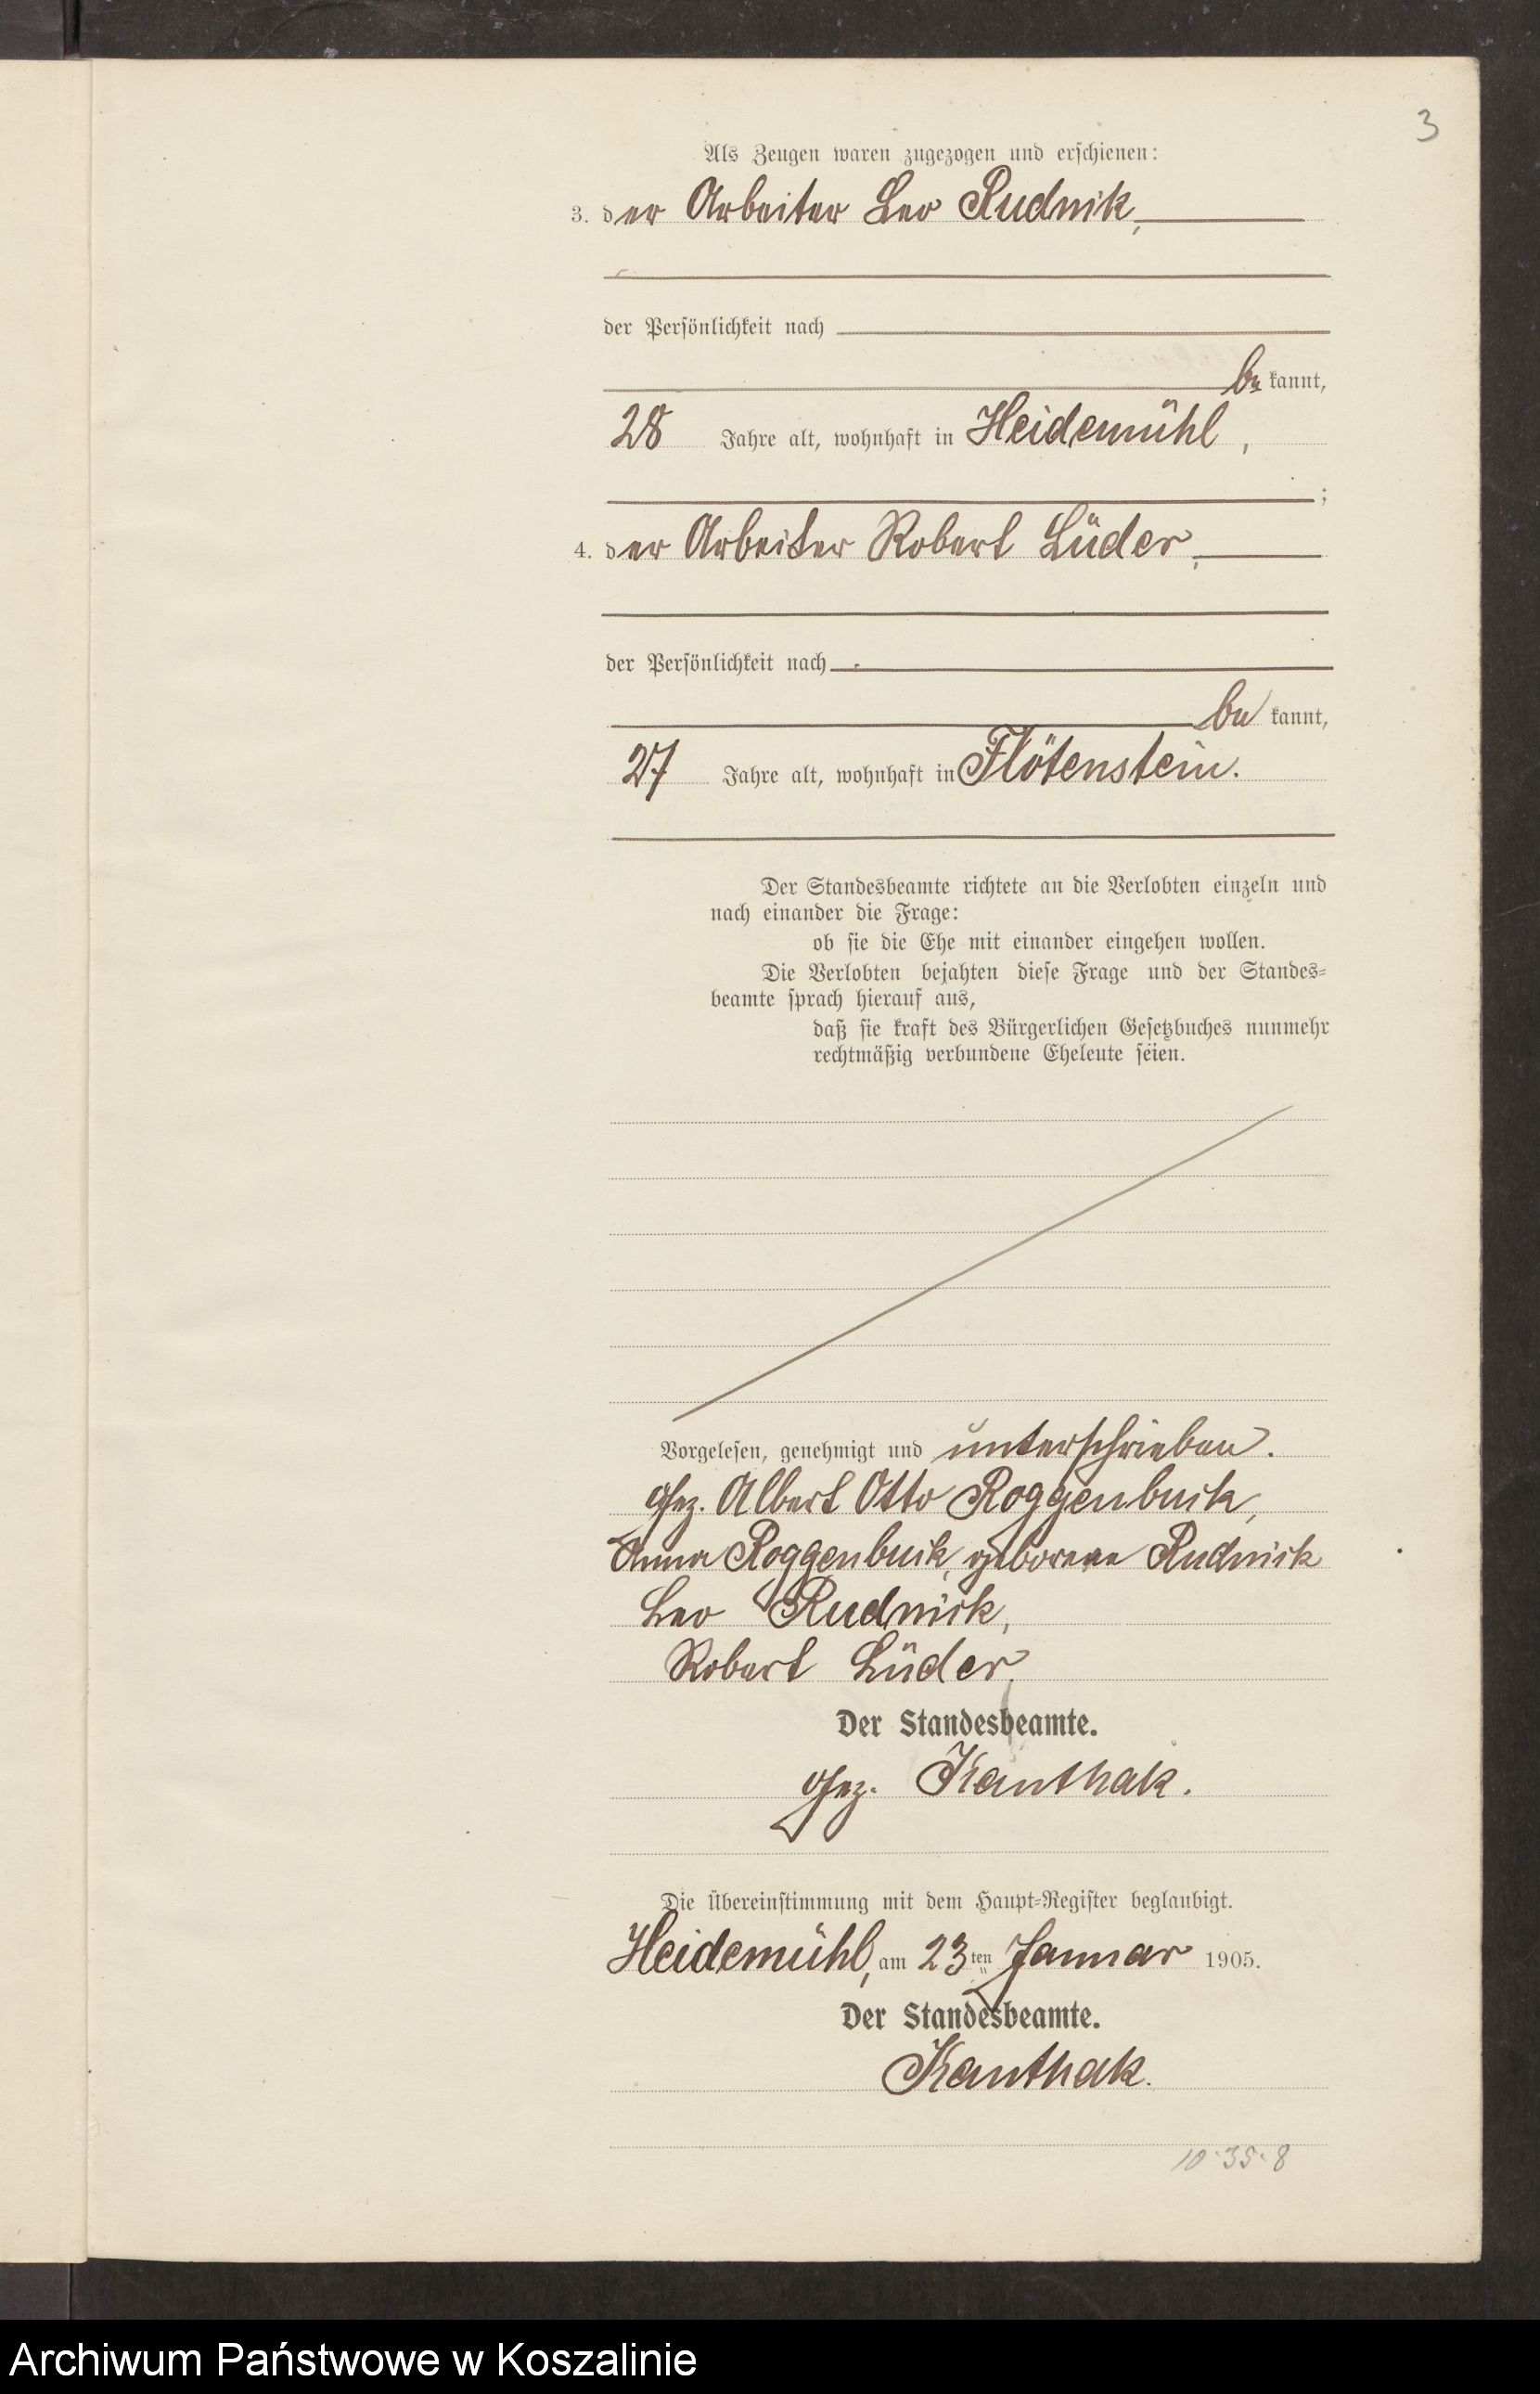 3
Als Zeugen waren zugezogen und erschienen:
3. der Arbeiter Leo Rudnik,
der Persönlichkeit nach
be kannt,
28 Jahre alt, wohnhaft in Heidemühl,
;
4. der Arbeiter Robert Lüder,
der Persönlichkeit nach
be kannt,
27 Jahre alt, wohnhaft in Flötenstein.
Der Standesbeamte richtete an die Verlobten einzeln und
nach einander die Frage:
ob sie die Ehe mit einander eingehen wollen.
Die Verlobten bejahten diese Frage und der Standes-
beamte sprach hierauf aus,
daß sie kraft des Bürgerlichen Gesetzbuches nunmehr
rechtmäßig verbundene Eheleute seien.
Vorgelesen, genehmigt und unterschrieben.
Gez. Albert Otto Roggenbuck,
Anna Roggenbuck, geborene Rudnick
Leo Rudnick,
Robert Lüder.
Der Standesbeamte.
Gez. Kanthak.
Die Übereinstimmung mit dem Haupt-Register beglaubigt.
Heidemühl, am 23ten Januar 1905.
Der Standesbeamte.
Kanthak.
10·35·8
Archiwum Państwowe w Koszalinie